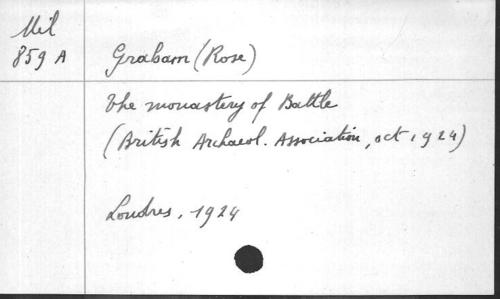 Mil
859 A
Graham (Rose)
The monastery of Battle
(British Archaeol. Association, oct. 1924)
Londres, 1924